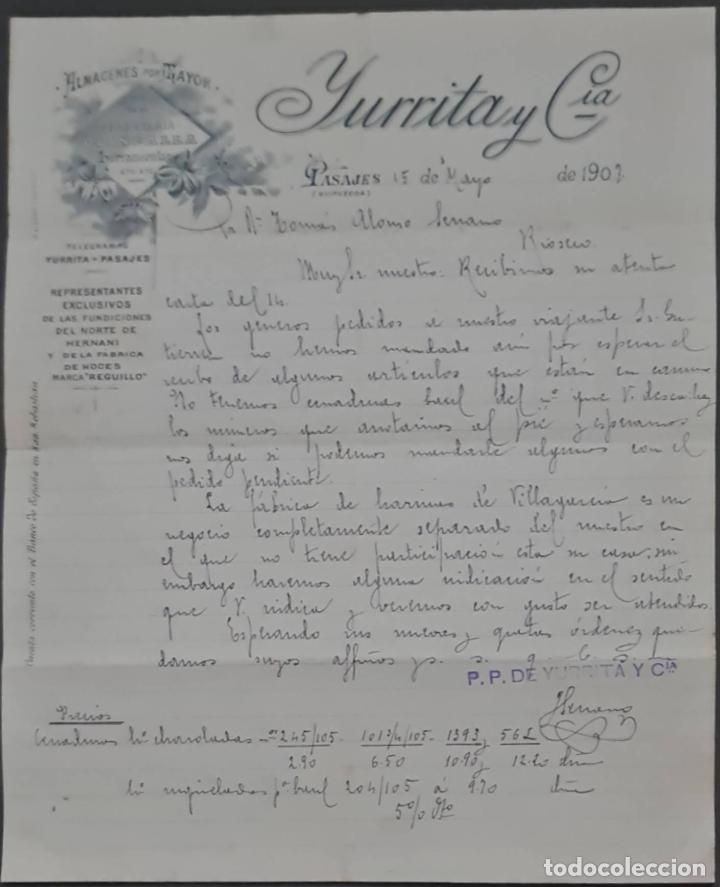 ALMACENES POR MAYOR
Herramientas
Yurrita y Cia
PASAJES 15 de Mayo de 1907.
(GUIPUZCOA)
Sr Dn Tomás Alonso Serrano
Rioseco.
TELEGRAMAS
YURRITA - PASAJES
REPRESENTANTES
EXCLUSIVOS
DE LAS FUNDICIONES
DEL NORTE DE
HERNANI
Y DE LA FABRICA
DE HOCES
MARCA "REGUILLO"
Cuenta corriente con el Banco de España en San Sebastián
Muy Sr nuestro: Recibimos su atenta
carta del 14.
Los generos pedidos a nuestro viajante Sr. Gu-
tierrez no hemos mandado aún por esperar el
recibo de algunos artículos que están en camino
No tenemos baul del nº que V. desea
los números que anotamos al pié y esperamos
nos diga si podemos mandarle algunos con el
pedido pendiente.
La fábrica de harinas de Villagarcia es un
negocio completamente separado del nuestro en
el que no tiene participación esta su casa, sin
embargo haremos alguna indicación en el sentido
que V. indica y veremos con gusto ser atendidos.
Esperando sus nuevas y gratas órdenes que-
damos suyos affmos y s. s. q. b. s. m.
P.P. DE YURRITA Y CIA
Serrano
Precios
charoladas nº 245/105 101 3/4/105 1393 y 562
2.90 6.50 10.90 y 12.20 dna
niqueladas pª baul 204/105 á 9.70 dna
5% Dto